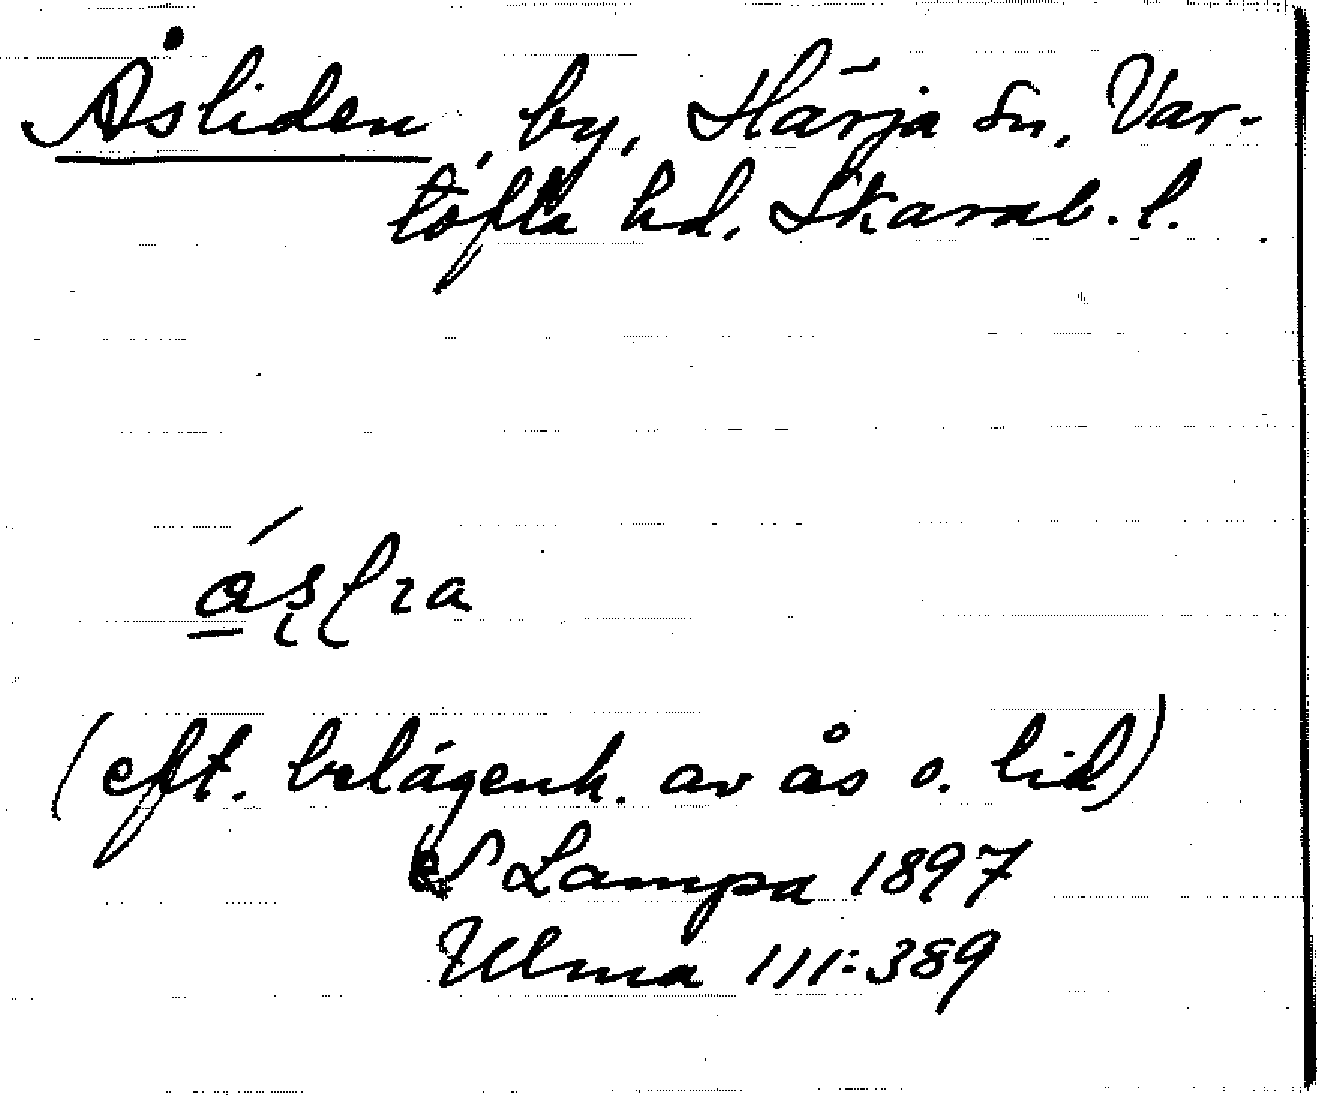 Åsliden, by, Härja sn, Var-
tofta hd. Skarab. l.
(eft. belägenh. av ås o. lid)
S Lampa 1897
Ulma 111:389